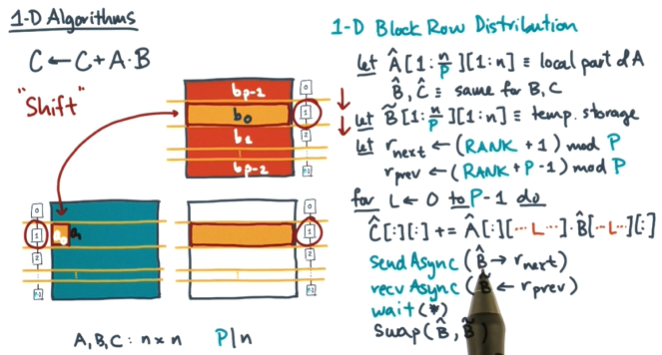 1-D Algorithms
C ← C + A · B
"Shift"
b_{p-2}
b_0
b_1
b_{p-2}
0
1
2
P-1
0
1
2
a_0 a_1
0
1
2
A, B, C : n × n P | n
1-D Block Row Distribution
let Â[1: n/P ][1:n] ≡ local part of A
B̂, Ĉ ≡ same for B, C
let B̃[1: n/P ][1:n] ≡ temp. storage
let r_next ← (RANK + 1) mod P
r_prev ← (RANK + P - 1) mod P
for L ← 0 to P - 1 do
Ĉ[:][:] += Â[:][··· L ···] · B̂[··· L ···][:]
sendAsync (B̂ → r_next)
recvAsync (B̃ ← r_prev)
wait (*)
swap (B̂, B̃)